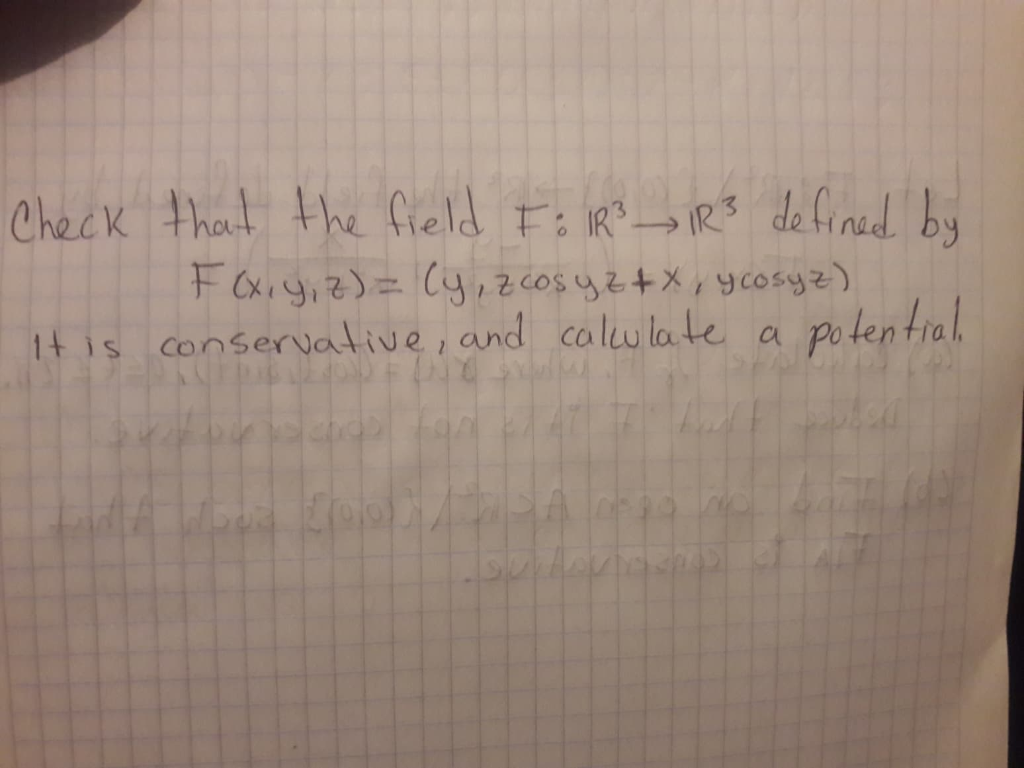 Check that the field F: ℝ³ → ℝ³ defined by
F(x,y,z) = (y, zcosyz + x, ycosyz)
It is conservative, and calculate a potential.